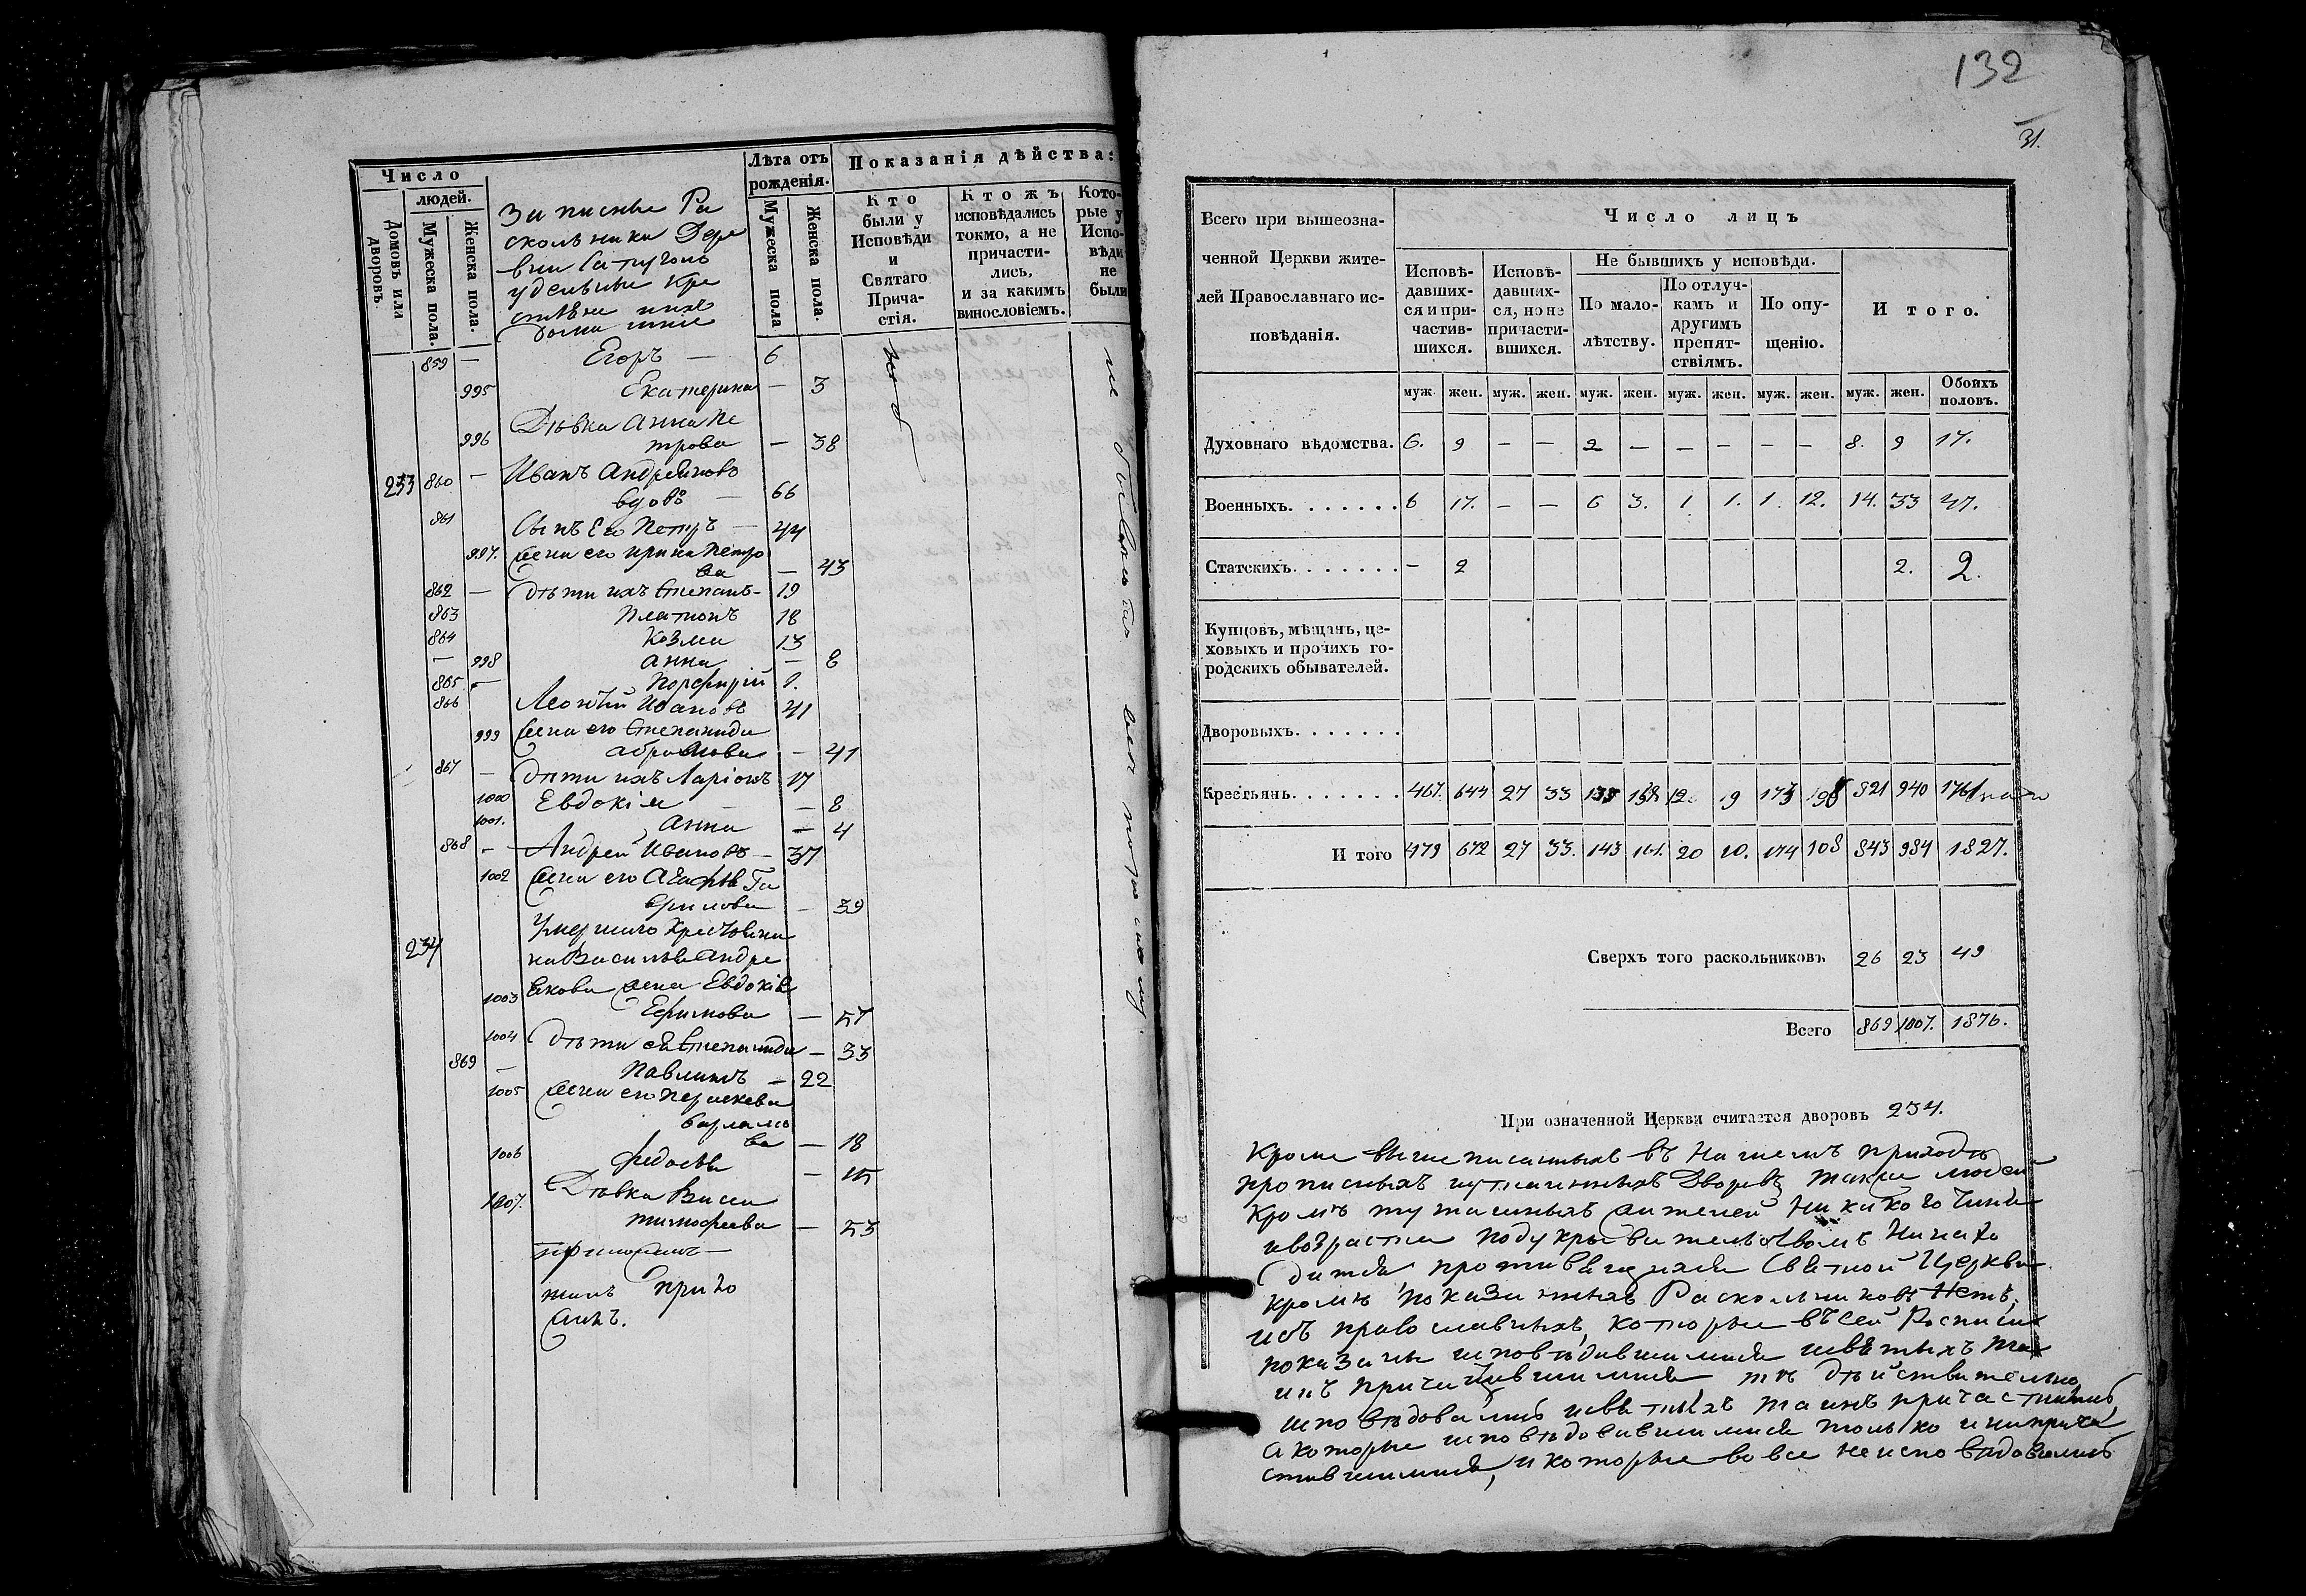 Число
людей.
Домовъ или дворовъ.
Мужеска пола.
Женска пола.
Записные Ра
скольники Дере
вни
удельные кре
стьяне ихъ
домашніе
Лѣта отъ рожденія.
Мужеска пола
Женска пола.
Показанія дѣйства:
Кто были у Исповѣди и Святаго Причастія.
Кто жъ исповѣдались токмо, а не причастились, и за какимъ винословіемъ.
Которые у Исповѣди не были
859 — Егоръ — 6
995 Екатерина — 3
Дѣвка Анна Пе
996 трова — 38
253 860 — Иванъ Андреяновъ
вдовъ — 66
861 Сынъ Его Петръ — 44
997. жена его Ирина Петро
ва — 43
862 — дѣти ихъ Степанъ — 19
863 Платонъ 18
864 Козма 13
— 998 Анна — 8
865 — Порфирій 1.
866 Леонтій Ивановъ 41
999 жена его Степанида
Абрамова — 41
867 — дѣти ихъ Ларіонъ 17
1000 Евдокія — 8
1001. Анна — 4
868 — Андрей Ивановъ — 37
1002 жена его Агафья Га
врилова — 39
Умершаго
234 на Василья Андре
1003 янова жена Евдокія
Ефимова — 57
1004 дѣти ея Степанида — 33
869 — Павлинъ — 22
1005 жена его Парасковья
Варламо
ва — 18
1006 Федосья — 15
Дѣвка Васса
1007. Тимофеева — 53
132
31.
Всего при вышеозна-
ченной Церкви жите-
лей Православнаго ис-
повѣданія.
Число лицъ
Исповѣдавшихся и причастившихся.
Исповѣдавшихся, но не причастившихся.
Не бывшихъ у исповѣди.
По малолѣтству.
По отлучкамъ и другимъ препятствіямъ.
По опущенію.
Итого.
муж. жен. муж. жен. муж. жен. муж. жен. муж. жен. муж. жен. Обоихъ половъ.
Духовнаго вѣдомства. 6. 9 — — 2 — — — — — 8. 9 17.
Военныхъ. 6 17. — — 6 3. 1 1. 1. 12. 14. 33 47.
Статскихъ. — 2 2. 2.
Купцовъ, мѣщанъ, це-
ховыхъ и прочихъ го-
родскихъ обывателей.
Дворовыхъ.
Крестьянъ. 467. 644 27 33 135 158 19 173 821 940 1761
И того 479 672 27 33. 143 161. 20 174 843 984 1827.
Сверхъ того раскольниковъ 26 23 49
Всего 869 1007. 1876.
При означенной Церкви считается дворовъ 234.
Кроме вышеписанныхъ въ нашемъ приходѣ
прописныхъ и утаенныхъ Дворовъ также людей
Кромѣ жителей никакого чина
и возраста подукрывательствомъ ни нахо
дится, противящихся Святой Церкви
кромѣ показанныхъ Раскольниковъ нетъ,
изъ православныхъ, которые въ сей Росписи
показаны исповѣдавшимися и святыхъ та
инъ причастившимися тѣ дѣйствительно
исповѣдовались и святыхъ таинъ причастились,
а которые исповѣдовавшимися только и неприча
стившимися, и которые вовсе неисповѣдовались